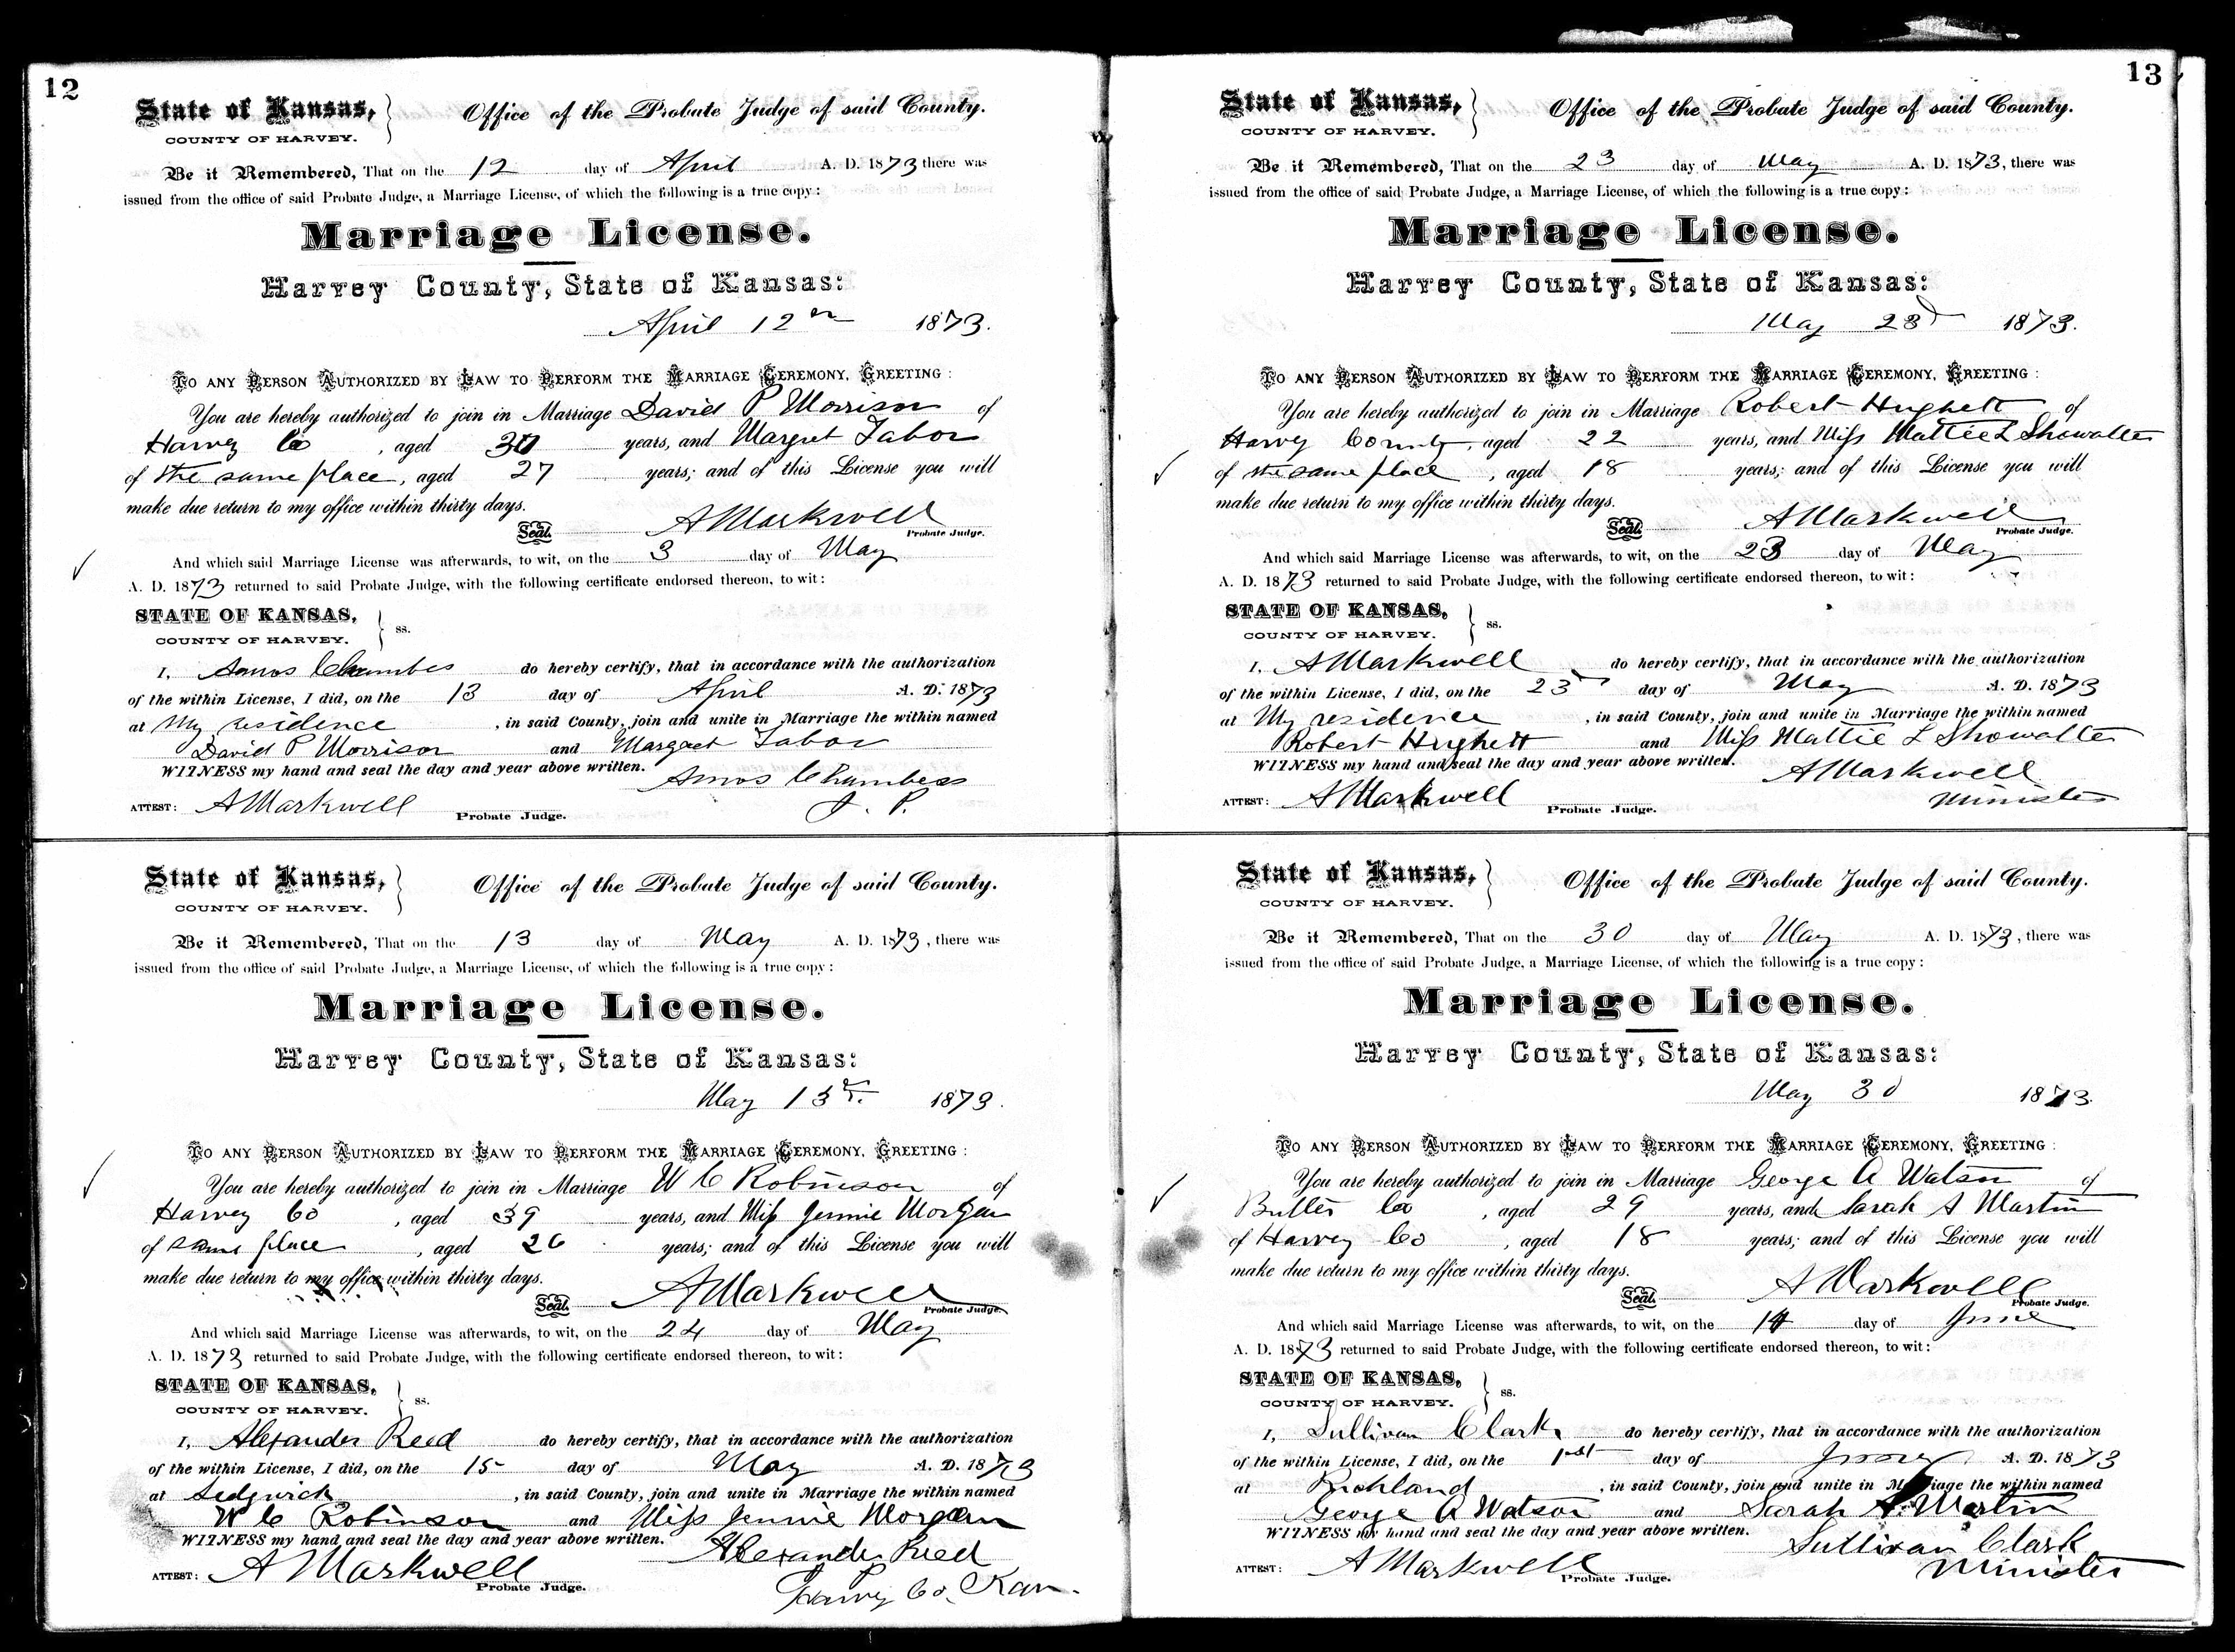 12
State of Kansas,
COUNTY OF HARVEY.
Office of the Probate Judge of said County.
Be it Remembered, That on the 12 day of April A. D. 1873 there was
issued from the office of said Probate Judge, a Marriage License, of which the following is a true copy:
Marriage License.
Harvey County, State of Kansas:
April 12th 1873.
TO ANY PERSON AUTHORIZED BY LAW TO PERFORM THE MARRIAGE CEREMONY, GREETING:
You are hereby authorized to join in Marriage David P Morrison of
Harvey Co, aged 30 years, and Margret Tabor
of the same place, aged 27 years; and of this License you will
make due return to my office within thirty days.
Seal. A Markwell
Probate Judge.
And which said Marriage License was afterwards, to wit, on the 3 day of May
A. D. 1873 returned to said Probate Judge, with the following certificate endorsed thereon, to wit:
STATE OF KANSAS,
COUNTY OF HARVEY. ss.
I, Amos Chambers do hereby certify, that in accordance with the authorization
of the within License, I did, on the 13 day of April A. D. 1873
at My residence, in said County, join and unite in Marriage the within named
David P Morrison and Margaret Tabor
WITNESS my hand and seal the day and year above written.
Amos Chambers
J. P.
ATTEST: A Markwell
Probate Judge.
State of Kansas,
COUNTY OF HARVEY.
Office of the Probate Judge of said County.
Be it Remembered, That on the 13 day of May A. D. 1873, there was
issued from the office of said Probate Judge, a Marriage License, of which the following is a true copy:
Marriage License.
Harvey County, State of Kansas:
May 13th 1873.
TO ANY PERSON AUTHORIZED BY LAW TO PERFORM THE MARRIAGE CEREMONY, GREETING:
You are hereby authorized to join in Marriage W C Robinson of
Harvey Co, aged 39 years, and Miss Jennie Morgan
of same place, aged 26 years; and of this License you will
make due return to my office within thirty days.
Seal. A Markwell
Probate Judge.
And which said Marriage License was afterwards, to wit, on the 24 day of May
A. D. 1873 returned to said Probate Judge, with the following certificate endorsed thereon, to wit:
STATE OF KANSAS,
COUNTY OF HARVEY. ss.
I, Alexander Reed do hereby certify, that in accordance with the authorization
of the within License, I did, on the 15 day of May A. D. 1873
at Sedgwick, in said County, join and unite in Marriage the within named
W C Robinson and Miss Jennie Morgan
WITNESS my hand and seal the day and year above written.
Alexander Reed
Harvey Co. Kan.
ATTEST: A Markwell
Probate Judge.
13
State of Kansas,
COUNTY OF HARVEY.
Office of the Probate Judge of said County.
Be it Remembered, That on the 23 day of May A. D. 1873, there was
issued from the office of said Probate Judge, a Marriage License, of which the following is a true copy:
Marriage License.
Harvey County, State of Kansas:
May 23d 1873.
TO ANY PERSON AUTHORIZED BY LAW TO PERFORM THE MARRIAGE CEREMONY, GREETING:
You are hereby authorized to join in Marriage Robert Hughett of
Harvey County, aged 22 years, and Miss Mattie L Showalter
of the same place, aged 18 years; and of this License you will
make due return to my office within thirty days.
Seal. A Markwell
Probate Judge.
And which said Marriage License was afterwards, to wit, on the 23 day of May
A. D. 1873 returned to said Probate Judge, with the following certificate endorsed thereon, to wit:
STATE OF KANSAS,
COUNTY OF HARVEY. ss.
I, A Markwell do hereby certify, that in accordance with the authorization
of the within License, I did, on the 23 day of May A. D. 1873
at My residence, in said County, join and unite in Marriage the within named
Robert Hughett and Miss Mattie L Showalter
WITNESS my hand and seal the day and year above written.
A Markwell
Minister
ATTEST: A Markwell
Probate Judge.
State of Kansas,
COUNTY OF HARVEY.
Office of the Probate Judge of said County.
Be it Remembered, That on the 30 day of May A. D. 1873, there was
issued from the office of said Probate Judge, a Marriage License, of which the following is a true copy:
Marriage License.
Harvey County, State of Kansas:
May 30 1873.
TO ANY PERSON AUTHORIZED BY LAW TO PERFORM THE MARRIAGE CEREMONY, GREETING:
You are hereby authorized to join in Marriage George A Watson of
Butler Co, aged 29 years, and Sarah A Martin
of Harvey Co, aged 18 years; and of this License you will
make due return to my office within thirty days.
Seal. A Markwell
Probate Judge.
And which said Marriage License was afterwards, to wit, on the 14 day of June
A. D. 1873 returned to said Probate Judge, with the following certificate endorsed thereon, to wit:
STATE OF KANSAS,
COUNTY OF HARVEY. ss.
I, Sullivan Clark do hereby certify, that in accordance with the authorization
of the within License, I did, on the 1st day of June A. D. 1873
at Richland, in said County, join and unite in Marriage the within named
George A Watson and Sarah A. Martin
WITNESS my hand and seal the day and year above written.
Sullivan Clark
Minister
ATTEST: A Markwell
Probate Judge.